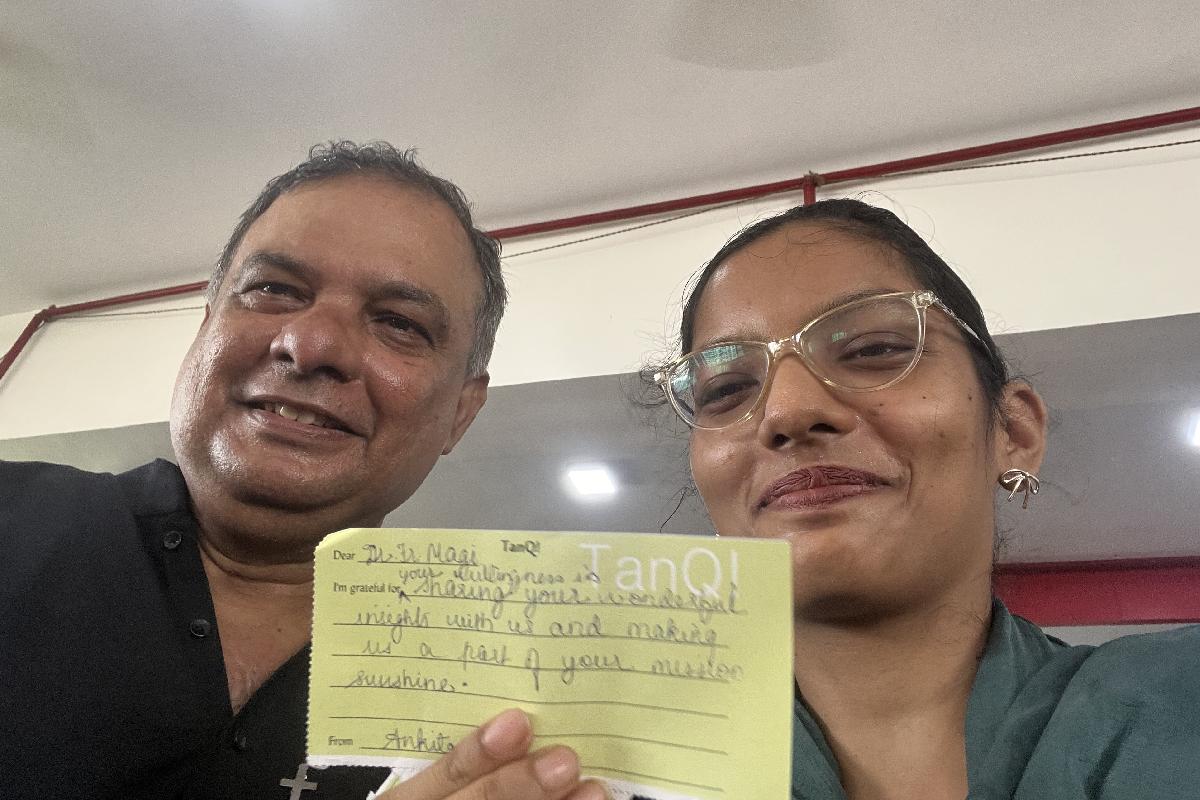 TanQ!
TanQ!
Dear Dr. Fr. Magi
your willingness in
I'm grateful for sharing your wonderful
insights with us and making
us a part of your mission
sunshine.
From Ankita